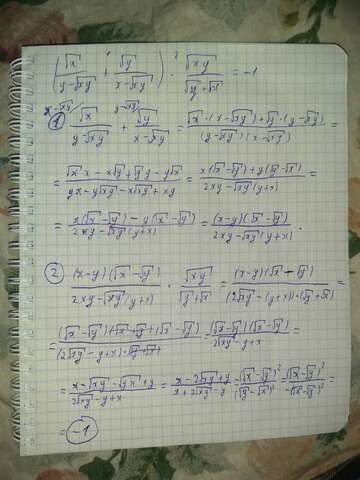 (√x / (y-√xy) + √y / (x-√xy)) · √xy / (√y+√x) = -1
① √x / (y-√xy) + √y / (x-√xy) = (√x·(x-√xy)+√y·(y-√xy)) / ((y-√xy)(x-√xy)) =
= (√x x - x√y + √y y - y√x) / (yx - y√xy - x√xy + xy) = (x(√x-√y)+y(√y-√x)) / (2xy-√xy(y+x)) =
= (x(√x-√y)-y(√x-√y)) / (2xy-√xy(y+x)) = ((x-y)(√x-√y)) / (2xy-√xy(y+x)).
② (x-y)(√x-√y) / (2xy-√xy(y+x)) · √xy / (√y+√x) = (x-y)(√x-√y) / ((2√xy-(y+x))·(√y+√x)) =
= (√x-√y)(√x+√y)(√x-√y) / ((2√xy-y+x)·(√y+√x)) = (√x-√y)(√x-√y) / (2√xy-y+x) =
= (x-√xy-√yx+y) / (2√xy-y+x) = (x-2√xy+y) / (x+2√xy-y) = (√x-√y)² / (√y-√x)² = (√x-√y)² / -(√x-√y)² =
= -1